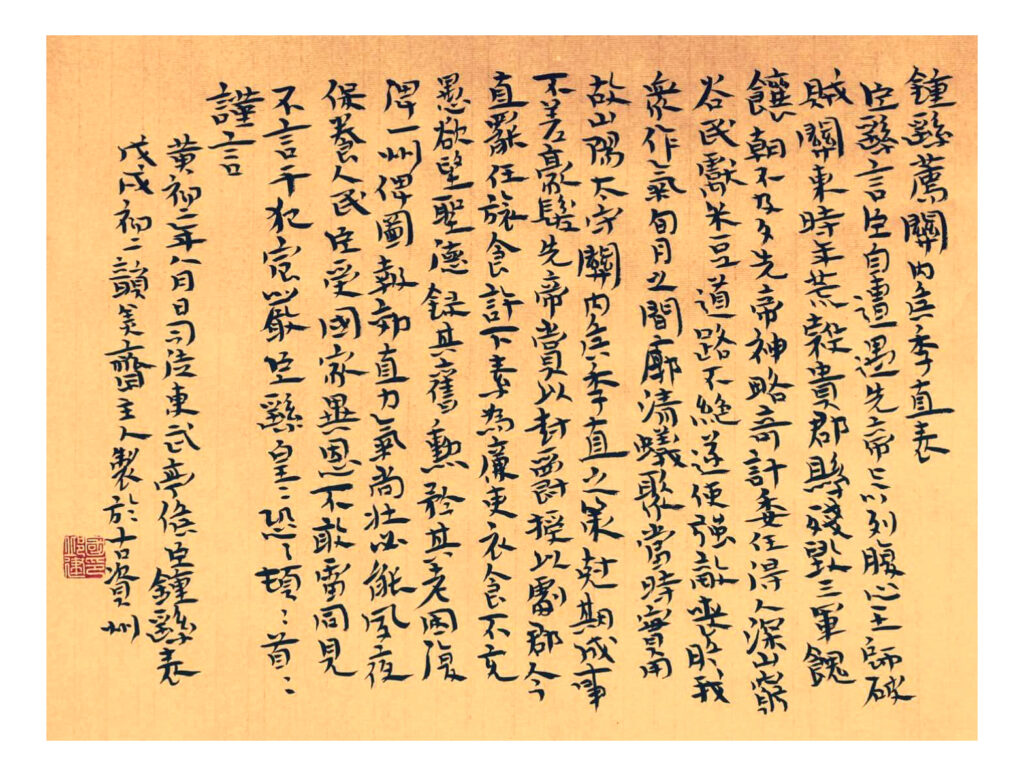 鍾繇薦關內侯季直表
臣繇言臣自遭遇先帝忝列腹心王師破
賊關東時年荒穀貴郡縣殘毀三軍餽
饟朝不及夕先帝神略奇計委任得人深山窮
谷民獻米豆道路不絕遂使强敵喪膽我
衆作氣旬月之間廓清蟻聚當時實用
故山陽太守關內侯季直之策尅期成事
不差豪髮先帝賞以封爵授以劇郡今
直罷任旅食許下素為廉吏衣食不充
愚欲望聖德錄其舊勳矜其老困復
俾一州俾圖報効直力氣尚壯必能夙夜
保養人民臣受國家異恩不敢雷同見
不言干犯宸嚴臣繇皇〻恐〻頓〻首〻
謹言
黃初二年八月日司徒東武亭侯臣鍾繇表
戊戌初二韻美齋主人製於古資州